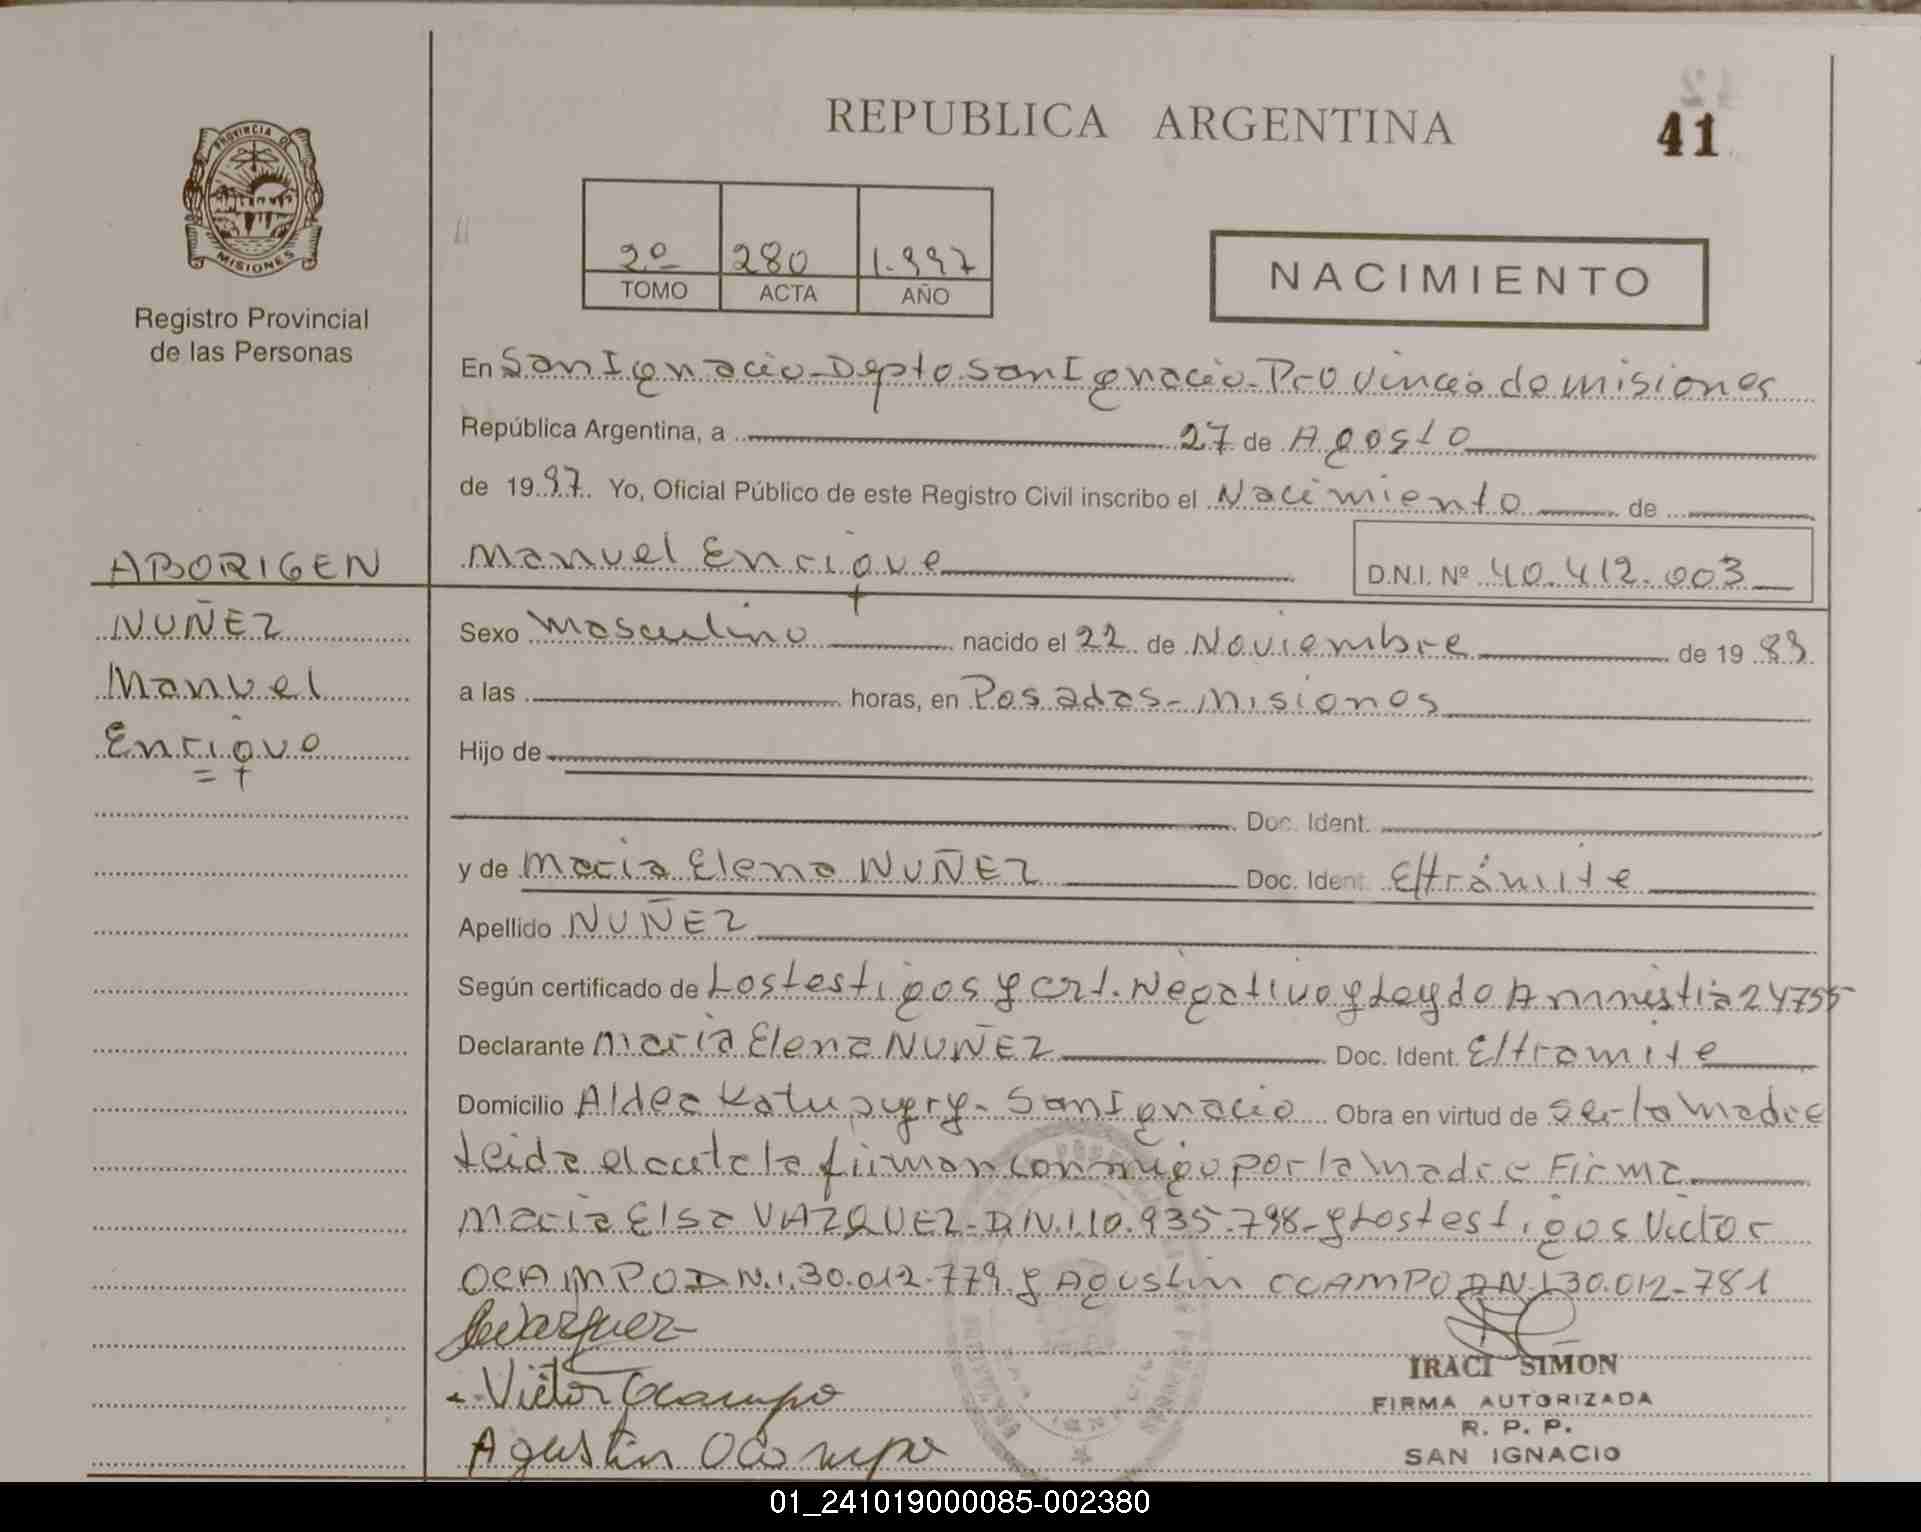 REPUBLICA ARGENTINA
41
PROVINCIA DE
MISIONES
Registro Provincial
de las Personas
2º 280 1.997
TOMO ACTA AÑO
NACIMIENTO
En San Ignacio - Depto San Ignacio - Provincia de misiones
República Argentina, a 27 de Agosto
de 1997. Yo, Oficial Público de este Registro Civil inscribo el Nacimiento de
Manuel Enrique
D.N.I. Nº 40.412.003
ABORIGEN
NUÑEZ
Manuel
Enrique
Sexo Masculino nacido el 22 de Noviembre de 1989
a las horas, en Posadas - Misiones
Hijo de
Doc. Ident.
y de Maria Elena NUÑEZ Doc. Ident. E/trámite
Apellido NUÑEZ
Según certificado de Los testigos y crt. Negativo y Ley de Amnistia 24755
Declarante Maria Elena NUÑEZ Doc. Ident. E/tramite
Domicilio Aldea Katupyry - San Ignacio Obra en virtud de Ser la Madre
Leida el acta la firman conmigo por la Madre Firma
Maria Elsa VAZQUEZ - D.N.I 10.935.798 - y Los testigos Victor
OCAMPO D.N.I. 30.012.779 y Agustin OCAMPO D.N.I 30.012-781
Vazquez
Victor Ocampo
Agustin Ocampo
IRACI SIMON
FIRMA AUTORIZADA
R. P. P.
SAN IGNACIO
01_241019000085-002380